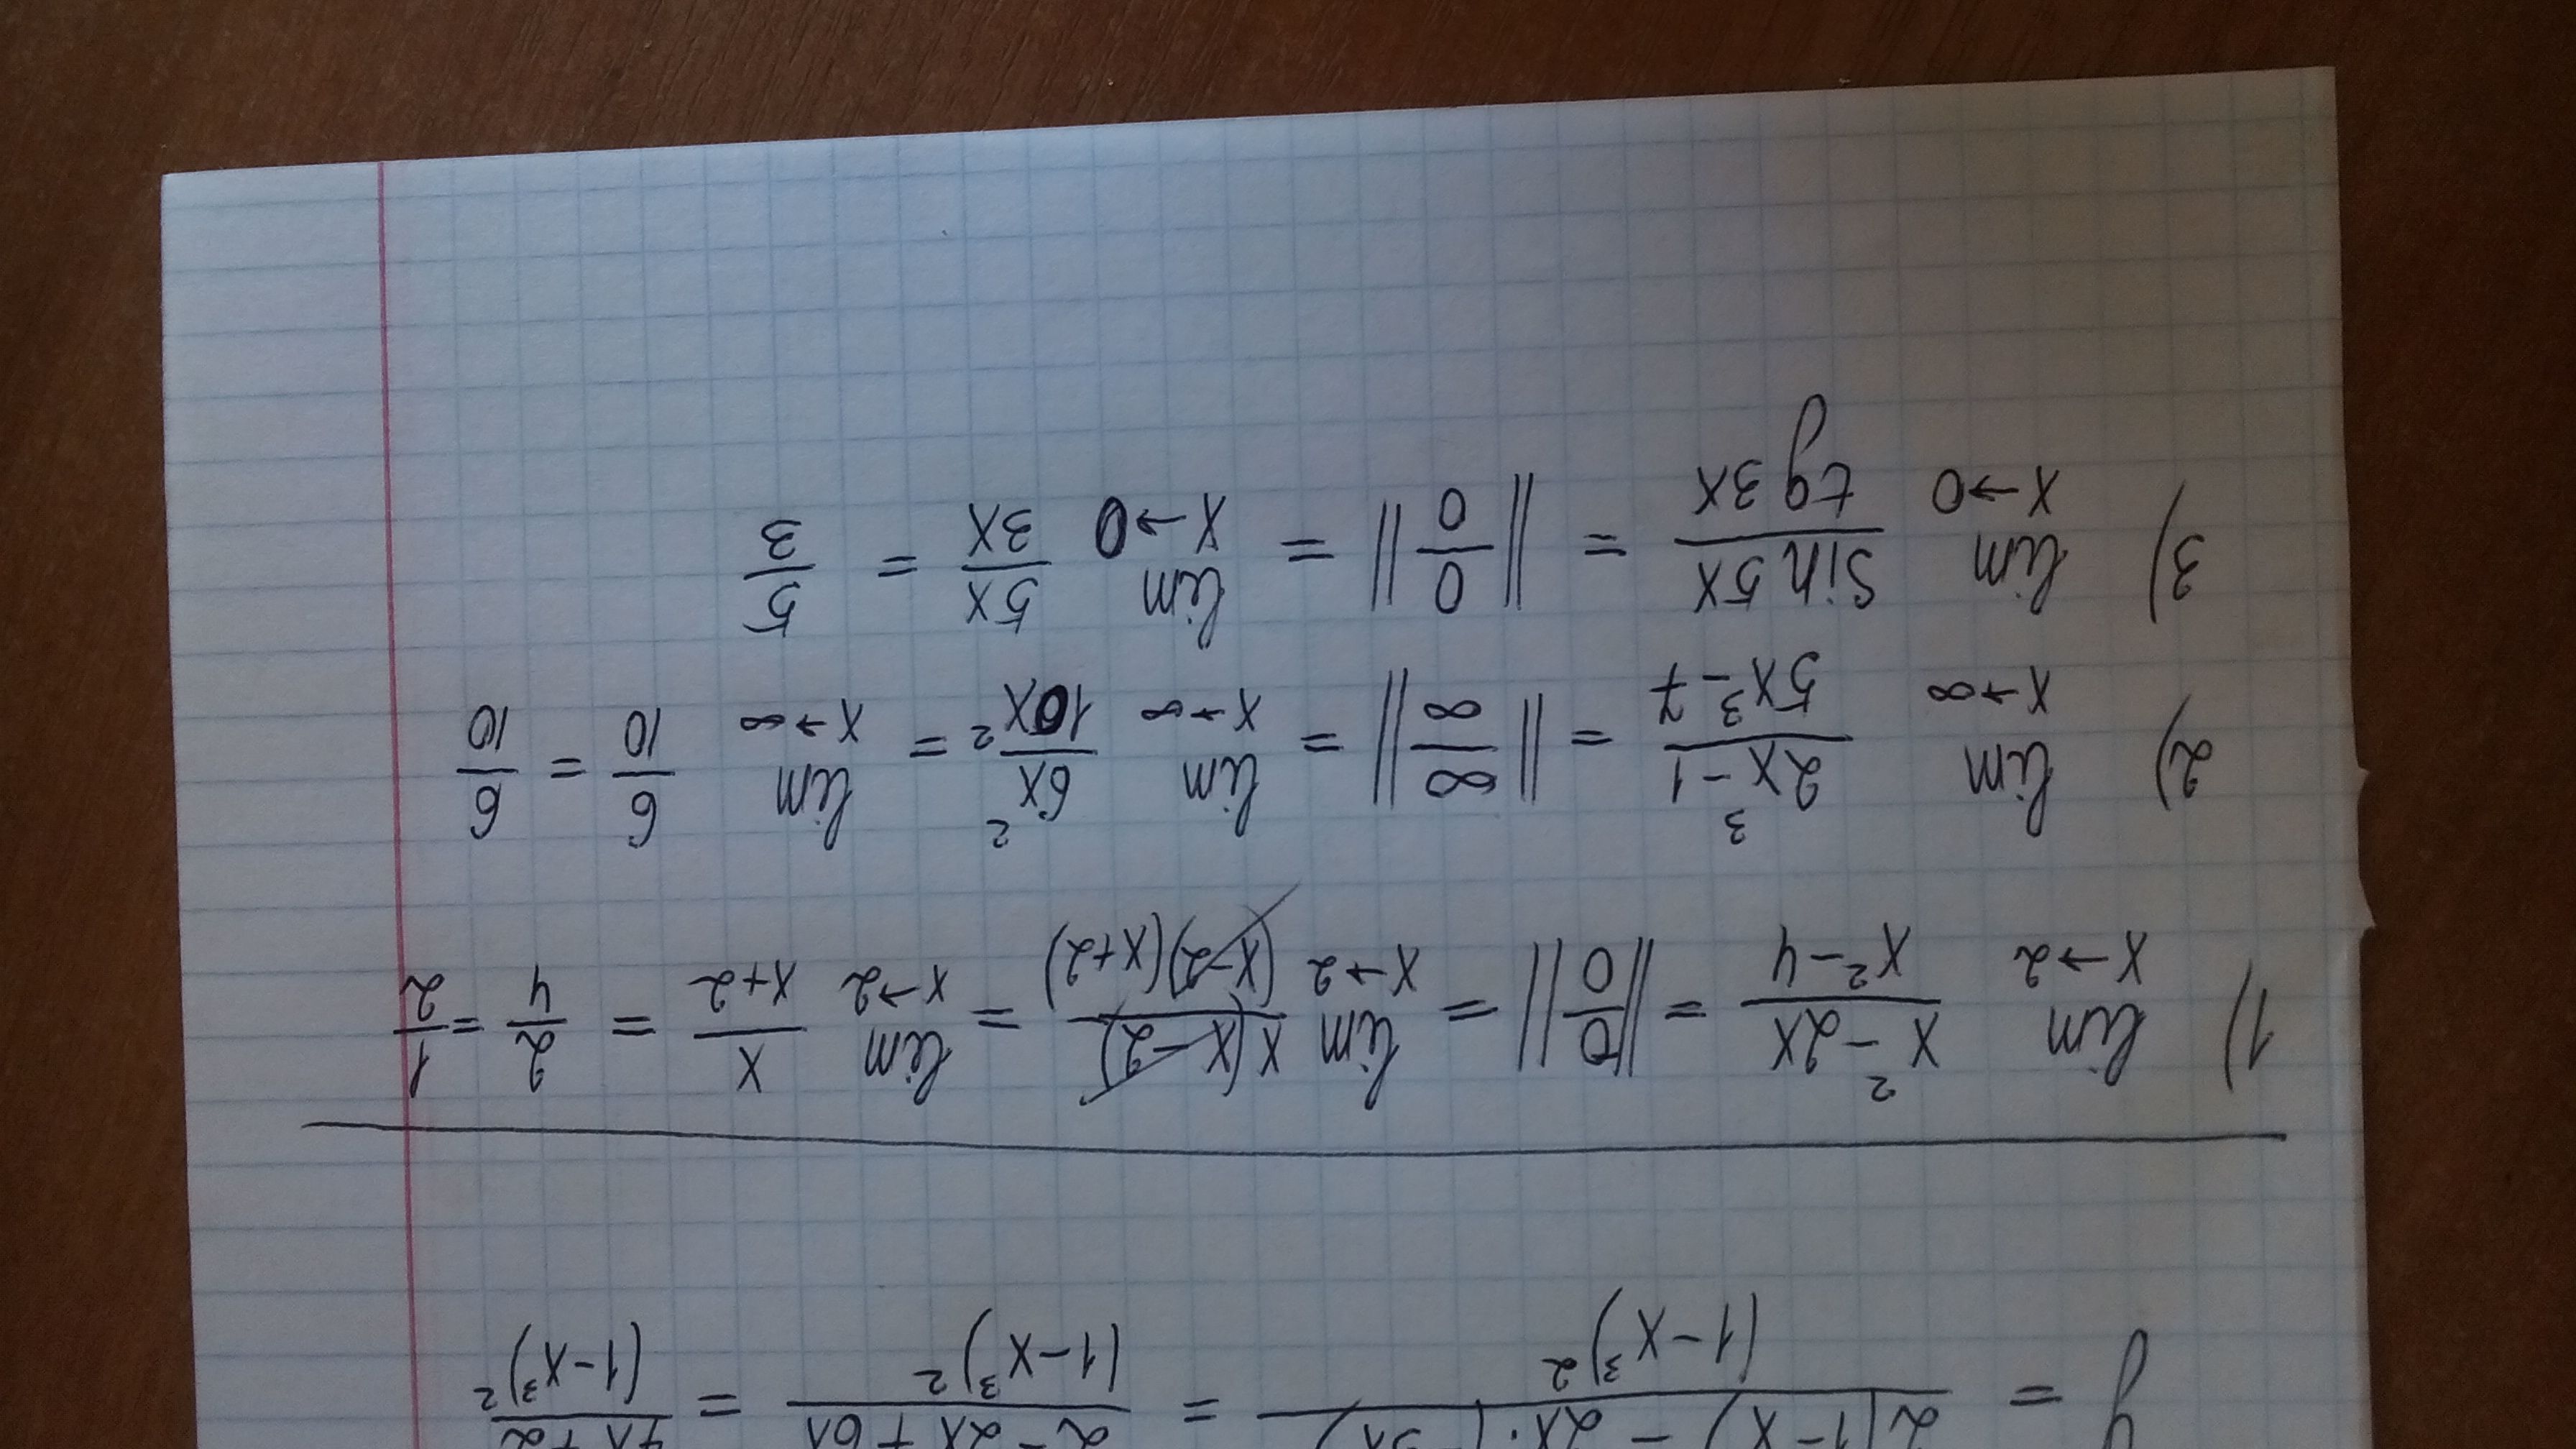 y' = \frac{2(1-x^3) - 2x \cdot (-3x}{(1-x^3)^2} = \frac{2 - 2x + 6x}{(1-x^3)^2} = \frac{4x + 2}{(1-x^3)^2}
1) \lim_{x \to 2} \frac{x^2 - 2x}{x^2 - 4} = ||\frac{0}{0}|| = \lim_{x \to 2} \frac{x(x-2)}{(x-2)(x+2)} = \lim_{x \to 2} \frac{x}{x+2} = \frac{2}{4} = \frac{1}{2}
2) \lim_{x \to \infty} \frac{2x^3 - 1}{5x^3 - 7} = ||\frac{\infty}{\infty}|| = \lim_{x \to \infty} \frac{6x^2}{10x^2} = \lim_{x \to \infty} \frac{6}{10} = \frac{6}{10}
3) \lim_{x \to 0} \frac{\sin 5x}{tg 3x} = ||\frac{0}{0}|| = \lim_{x \to 0} \frac{5x}{3x} = \frac{5}{3}